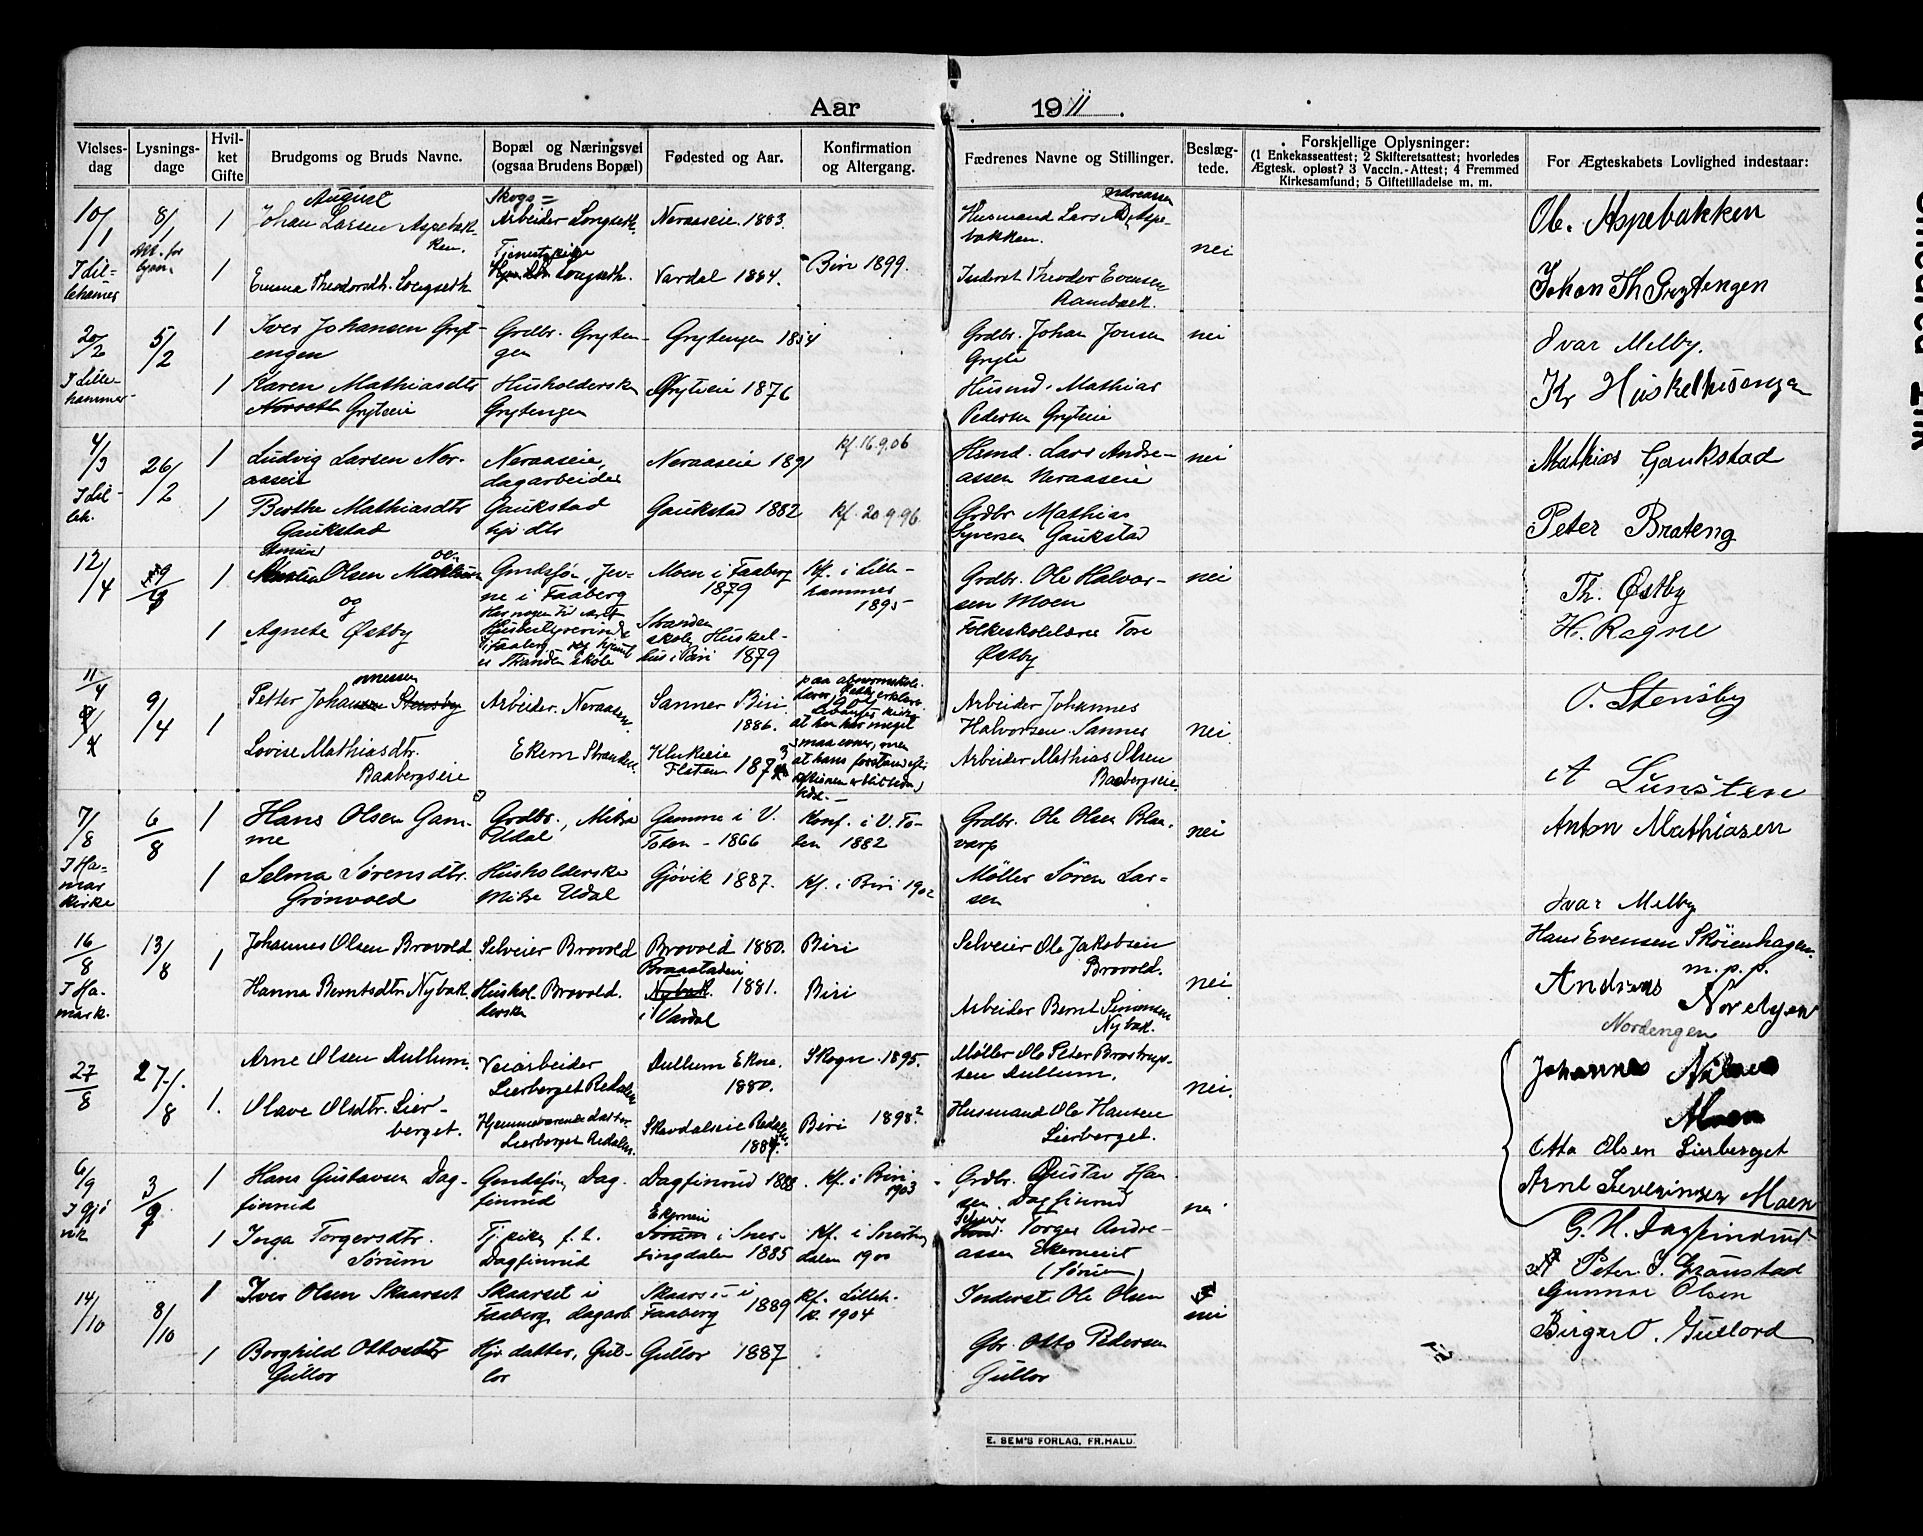 Aar 1911.
Vielses-dag
Lysnings-dage
Hvil-ket Gifte
Brudgoms og Bruds Navne.
Bopæl og Næringsvei (ogsaa Brudens Bopæl)
Fødested og Aar.
Konfirmation og Altergang.
Fædrenes Navne og Stillinger.
Beslæg-tede.
Forskjellige Oplysninger:
(1 Enkekasseattest; 2 Skifteretsattest; hvorledes
Ægtesk. opløst? 3 Vaccin.-Attest; 4 Fremmed
Kirkesamfund; 5 Giftetilladelse m. m.
For Ægteskabets Lovlighed indestaar:
10/1
I Lil-
lehamer
8/1
1
August
Johan Larsen Aspebak-
ken.
Skogs=
Arbeider Longseth
Neraaseie. 1883.
Husmand Lars Andreassen Aspe-
bakken.
nei
Ol. Aspebakken
1
Emma Theodorsdtr. Longseth
Tjenestepike
Longseth.
Vardal 1884.
Biri 1899.
Inderst Theodor Evensen
Johan Th Grytengen
20/2
I Lille-
hammer
5/2
1
Iver Johansen Gryt-
engen
Grdbr. Gryten-
gen
Grytengen 1854
Grdbr. Johan Jonsen
Gryte
nei
Ivar Melby.
1
Karen Mathiasdtr
Norseth Gryteie
Husholderske
Grytengen
Gryteie 1876
Husmd. Mathias
Pedersen Gryteie
Kr Huskelhusengen
4/3
I Lil-
leh.
26/2
1
Ludvig Larsen Ner-
aaseie
Neraaseie,
dagarbeider
Neraaseie 1891
kf. 16.9.06
Hsmd. Lars Andre-
assen Neraaseie
nei
Mathias Gaukstad
1
Berthe Mathiasdtr
Gaukstad
Gaukstad
hjv dtr
Gaukstad 1882
Kf. 20.9.96.
Grdbr Mathias
Syversen Gaukstad
Peter Brateng
12/4
1
Olsen Moen
og
Gaardsføn, Jev-
ne i Faaberg
Moen i Faaberg
1879
Kf. i Lille-
hammer
1895
Grdbr. Ole Halvor-
sen Moen
nei
Th. Østby
1
Agnete Østby
Har nogen tid været
Husbestyrerinde
i Faaberg
Stranden
skole, Huskel-
hus i Biri 1879
Folkeskolelærer Tore
Østby
H. Rogne
11/4
9/4
1
Petter Johannessen Stensby
Arbeider. Neraasen
Sannes Biri
1886.
Arbeider Johannes
Halvorsen Sannes
nei.
O. Stensby
Lovise Mathiasdtr.
Baabergseie
Ekern Stranden.
Klukeeie
Flaten 1873
at han har meget
smaa evner, men
Arbeider Mathias Olsen
Baabergseie.
A Lunsten
7/8
I Ha-
mar
kirke
6/8
1
Hans Olsen Gam-
me
Grdbr., Mitre
Udal
Gamme i V.
Toten - 1866
Konf. i V. To-
ten 1882
Grdbr. Ole Olsen Blaa-
varp
nei
Anton Mathiasen
1
Selma Sørensdtr.
Grønvold
Husholderske
Mitre Udal
Gjøvik 1887.
Kf. i Biri 1902
Møller Søren Lar-
sen
Ivar Melby
16/8
I Ha-
mark.
13/8
1
Johannes Olsen Brovold
Selveier Brovold
Brovold 1880.
Biri
Selveier Ole Jakobsen
Brovold.
nei.
Hans Evensen Skoienhagen
m.p.p.
Hanna Berntsdtr. Nybak.
Hushol- Brovold.
derske
Braastadeie
Nybak. 1881.
i Vardal
Biri
Arbeider Bernt Simonsen
Nybak.
Andreas Nordengen
Nordengen
27/8
27/8
1.
Arne Olsen Dullum.
Veiarbeider
Lierberget Redalen
Dullum Ekne
1880.
Skogn. 1895.
Møller Ole Peter Brostrup-
sen Dullum.
nei.
Johannes Nilsen
Moen
Olave Olsdtr. Lier-
berget.
Hjemmeværende datter
Lierberget Redalen.
Skavdalseie Redalen
1884.
Biri 1898.
Husmand Ole Hansen
Lierberget.
Otto Olsen Lierberget
Arne Severinsen Moen
6/9
I Gjø-
vik
3/9
1
Hans Gustavsen Dag-
finrud
Gaardsføn, Dag-
finrud
Dagfinrud 1888
Kf. i Biri
1903
Grdbr. Gustav Han-
sen, Dagfinrud
nei
G. H. Dagfindrud
1
Inga Torgersdtr.
Sørum
Tj. pike, f. t.
Dagfinrud
Ekerneie
Sørum i Sner-
tingdalen 1885
Kf. i Snerting-
dalen 1900
Torger Andre-
assen Ekerneiet
(Sørum)
Peter J. Granstad
14/10
8/10
1
Iver Olsen Skaarset
Skaarset i
Faaberg, dagarb.
Skaarset i
Faaberg 1889
Kf. Lilleh.
k. 1904
Inderst Ole Olsen
nei
Gunnar Olsen
1
Borghild Ottosdtr
Gullor
Hjv datter, Gul-
lor
Gullor 1887
Gbr. Otto Pedersen
Gullor
Birger O. Gullord
E. SEM'S FORLAG, FR.HALD.